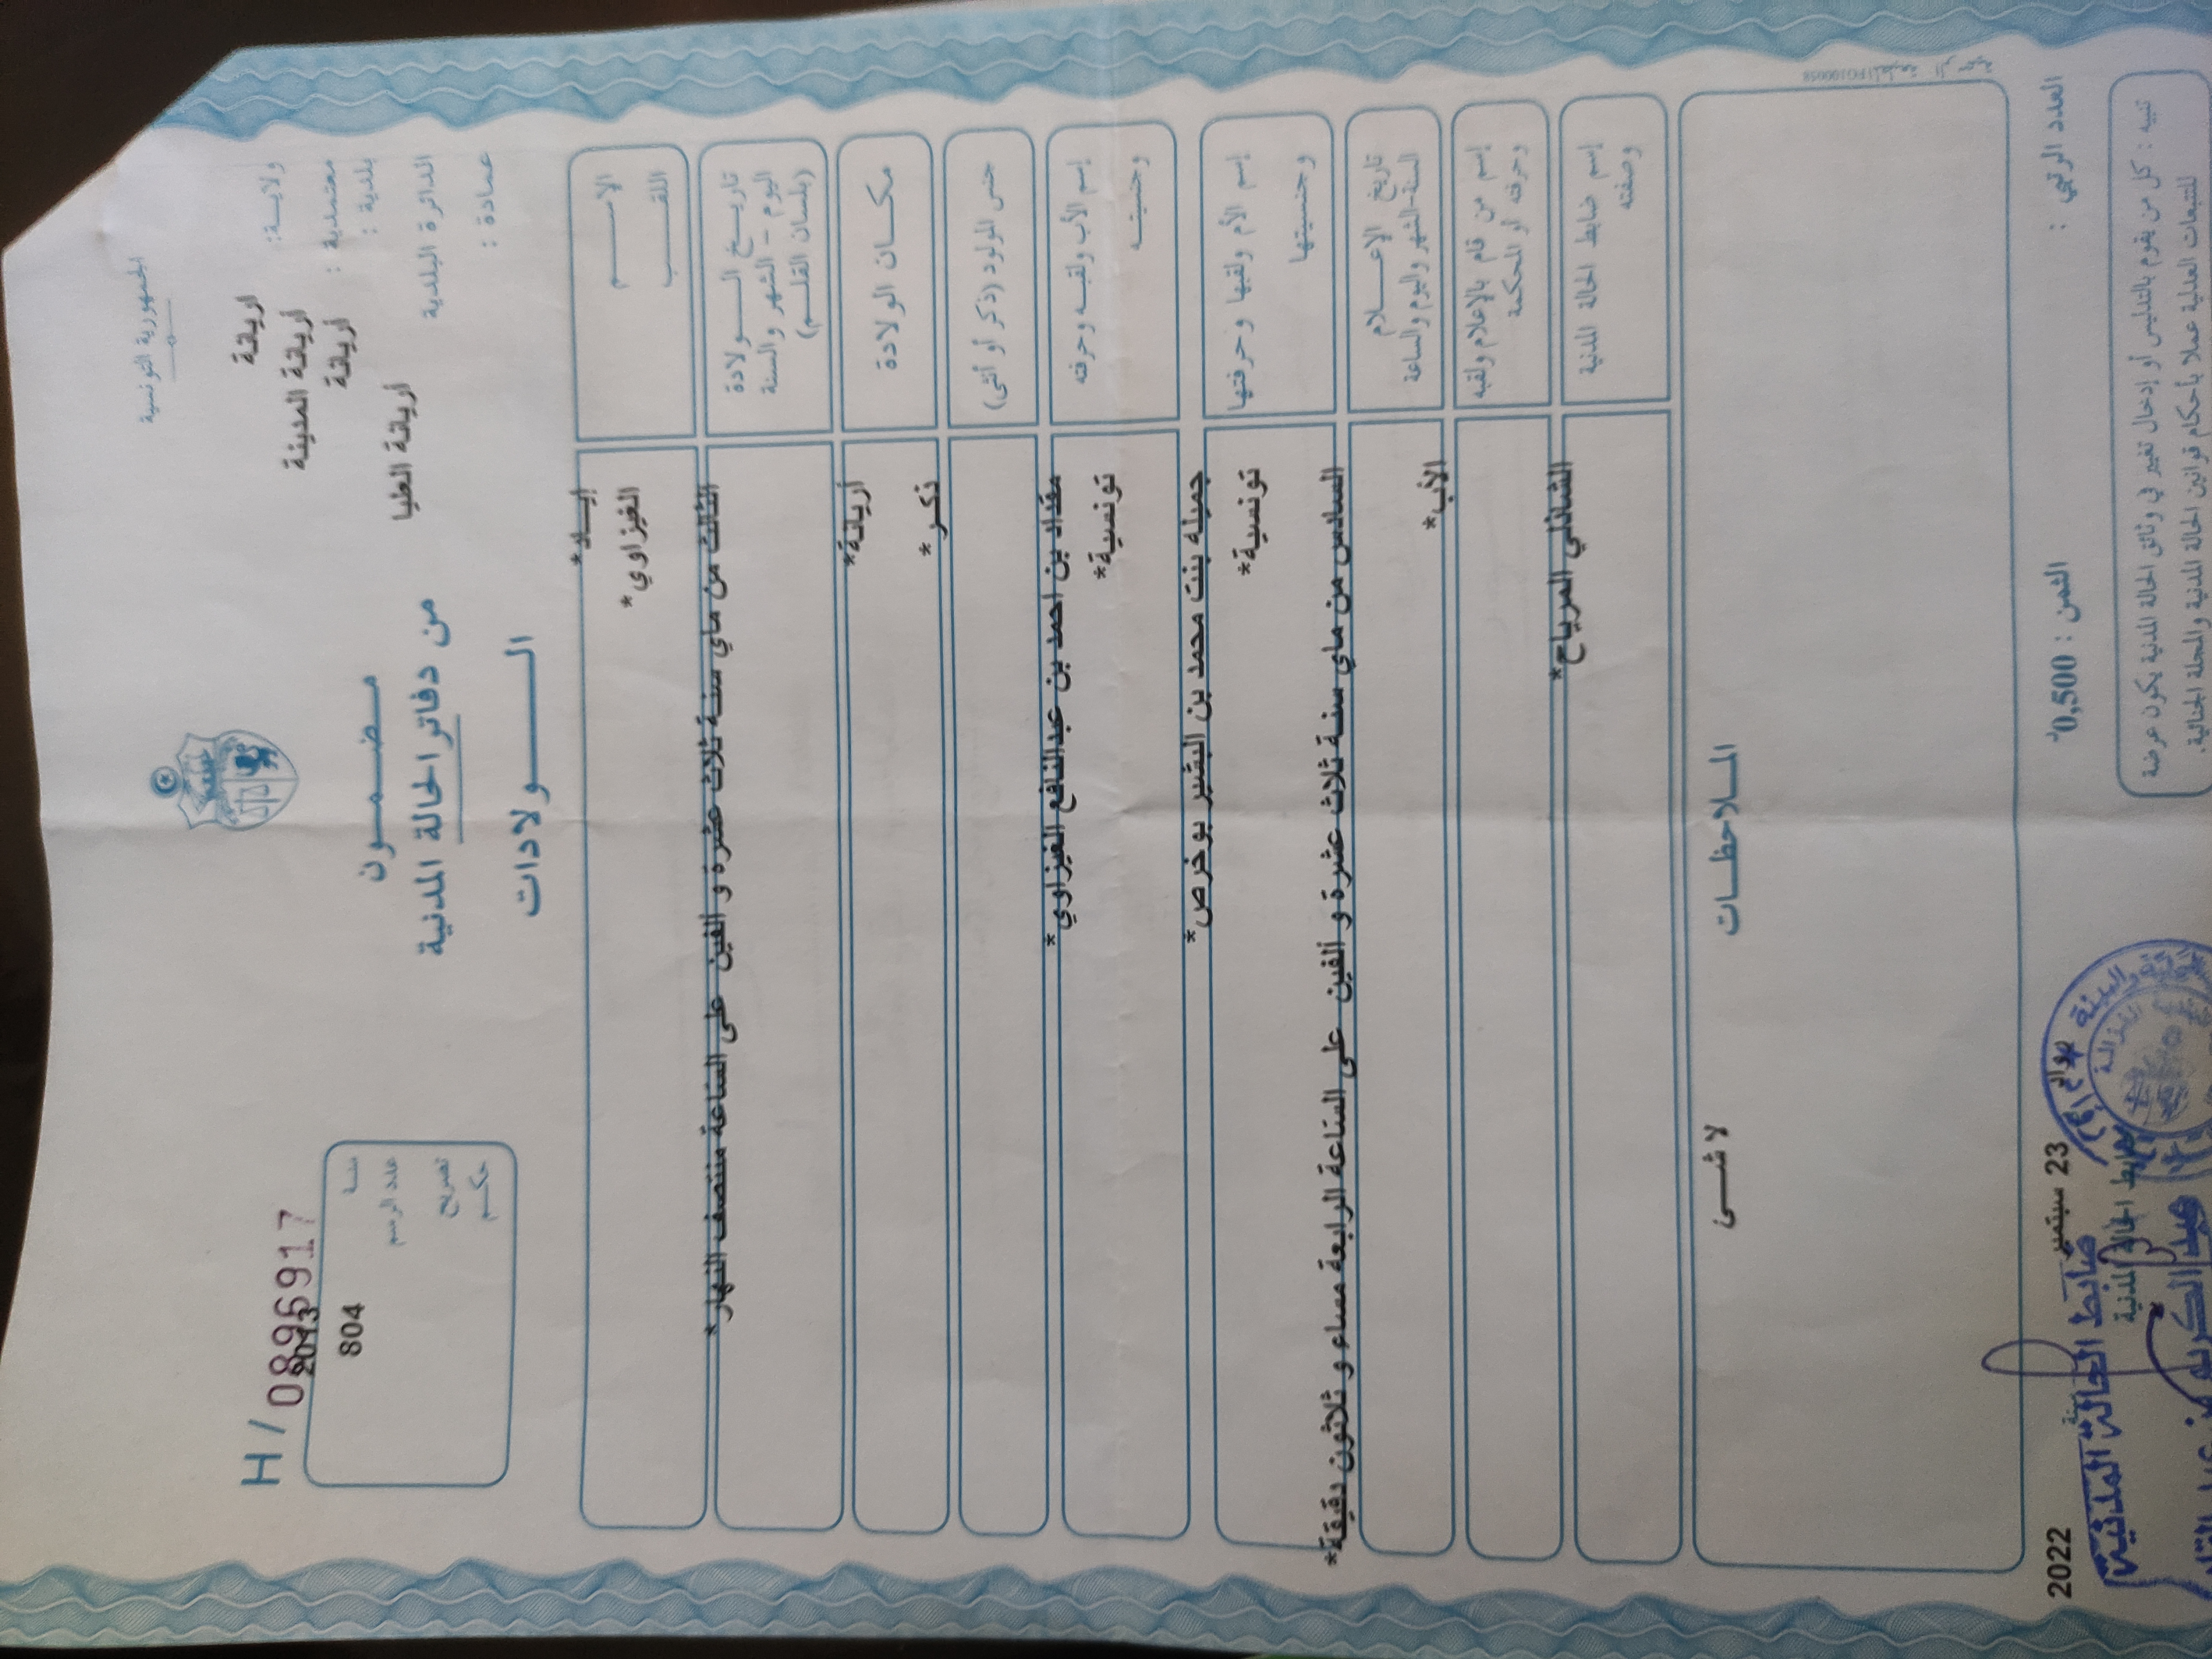 الجمهورية التونسية
H / 0896917
ولايـــة: اريانة
معتمدية : أريانة المدينة
بلدية : أريانة
الدائرة البلدية اريانة العليا
عمـادة :
مـضـمــون
من دفاتر الحالة المدنية
الـــــولادات
سنـة 2013
عدد الرسم 804
تصريح
حكـم
الاســــم إيـــاد*
اللقــــب الغيزاوي*
تاريـــخ الــــولادة الثالث من ماي سنـة ثلاث عشرة و ألفين على الساعة منتصف النهار*
اليوم - الشهر والسنة
(بلسان القلـم)
مكــان الولادة أريانة*
جنس المولود (ذكر أو أنثى) ذكـر*
إسم الأب ولقبـه وحرفته مقداد بن احمد بن عبدالنافع الغيزاوي*
وجنسيتــه تونسية*
إسم الأم ولقبها وحرفتها جميله بنت محمد بن البشير بوخرص*
وجنسيتها تونسية*
تاريخ الإعــــلام السادس من ماي سنـة ثلاث عشرة و ألفين على الساعة الرابعة مساء و ثلاثون دقيقة*
السنة-الشهر واليوم والساعة
إسم من قام بالإعلام ولقبه الأب*
وحرفته أو المحكمة
إسم ضابط الحالة المدنية الشاذلي المرياح*
وصفته
المـلاحظــات
لا شــىء
العدد الرتبي :
الثمن : 0,500د
23 سبتمبر سنة 2022
ضابط الحالة المدنية
ضابط الحالة المدنية
تنبيه : كل من يقوم بالتدليس أو إدخال تغيير في وثائق الحالة المدنية يكون عرضة
للتتبعات العدلية عملا بأحكام قوانين الحالة المدنية والمجلة الجنائية.